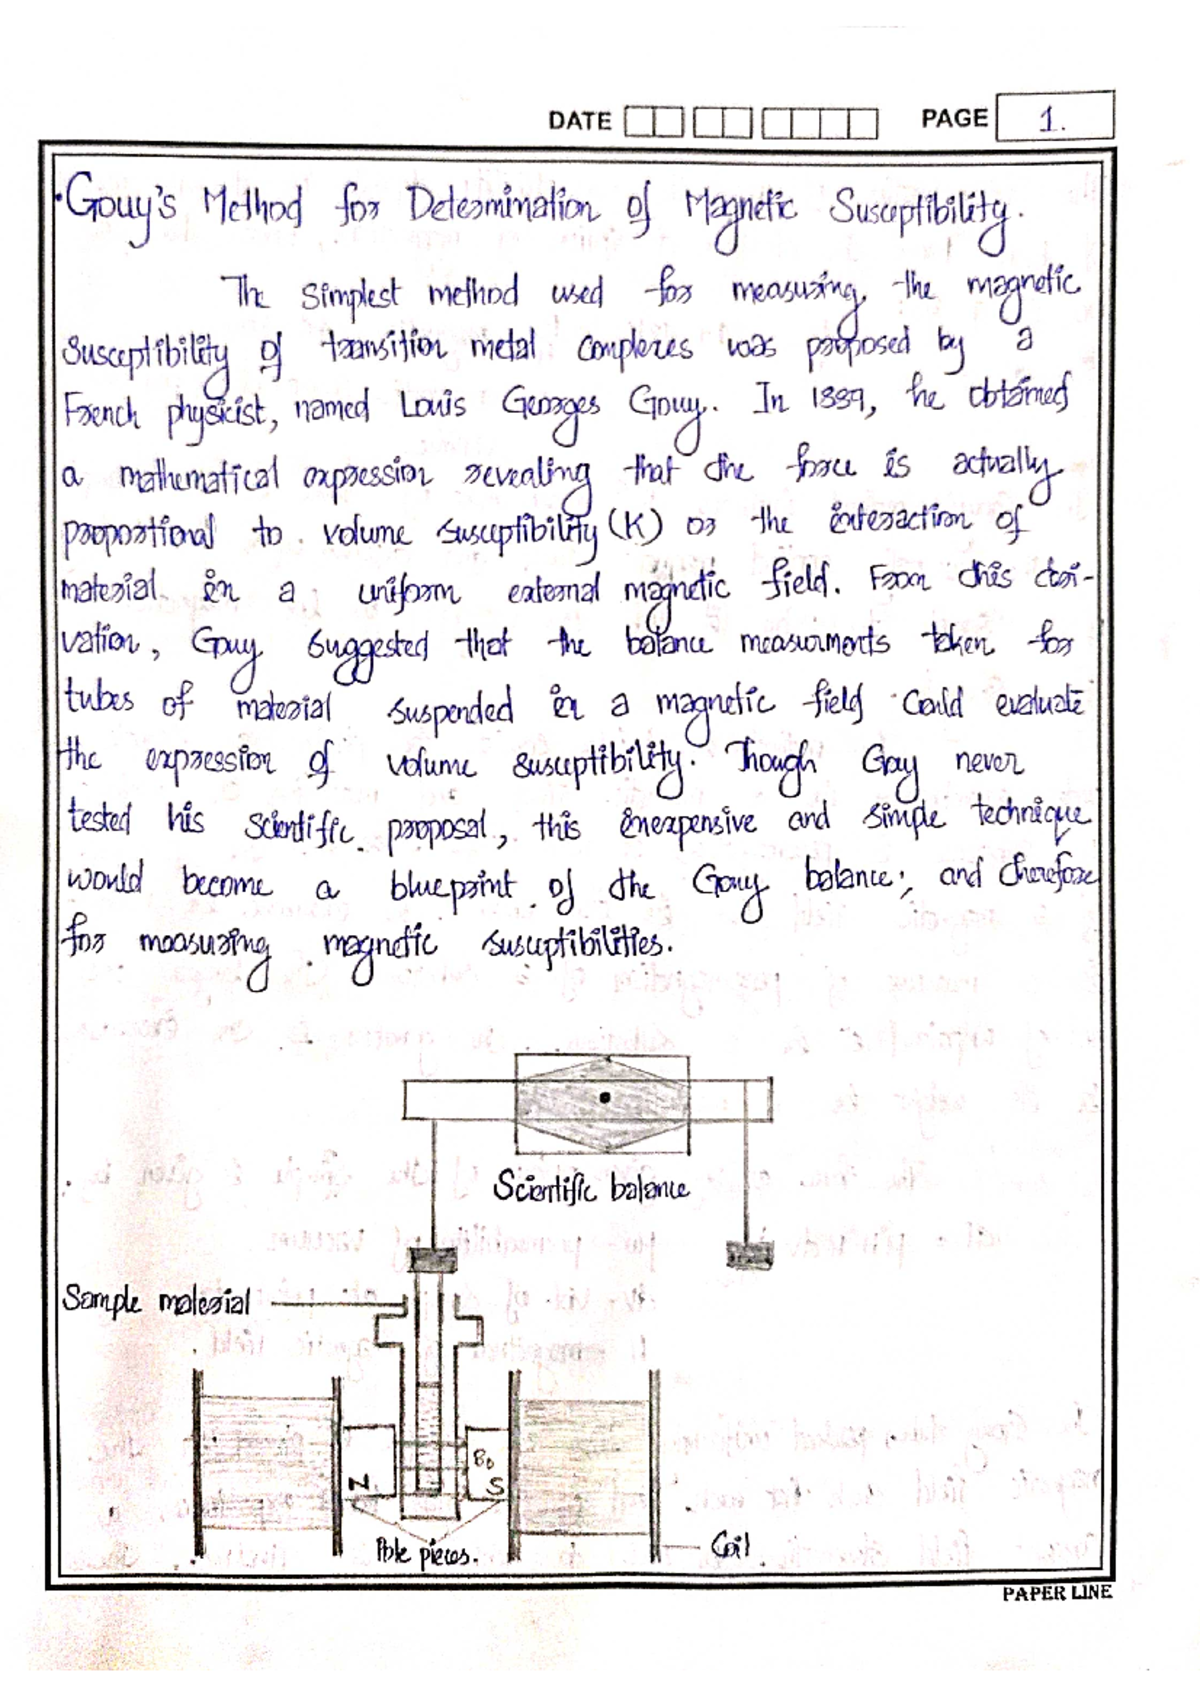 DATE PAGE 1.
Gouy's Method for Determination of Magnetic Susceptibility.
The simplest method used for measuring the magnetic
susceptibility of transition metal complexes was proposed by a
French physicist, named Louis Georges Gouy. In 1889, he obtained
a mathematical expression revealing that the force is actually
proportional to volume susceptibility (K) or the interaction of
material in a uniform external magnetic field. From this deri-
vation, Gouy suggested that the balance measurments taken for
tubes of material suspended in a magnetic field could evaluate
the expression of volume susceptibility. Though Gouy never
tested his scientific proposal, this inexpensive and simple technique
would become a blueprint of the Gouy balance; and therefore
for measuring magnetic susceptibilities.
Scientific balance
Sample material
B₀
N S
Pole pieces.
Coil
PAPER LINE